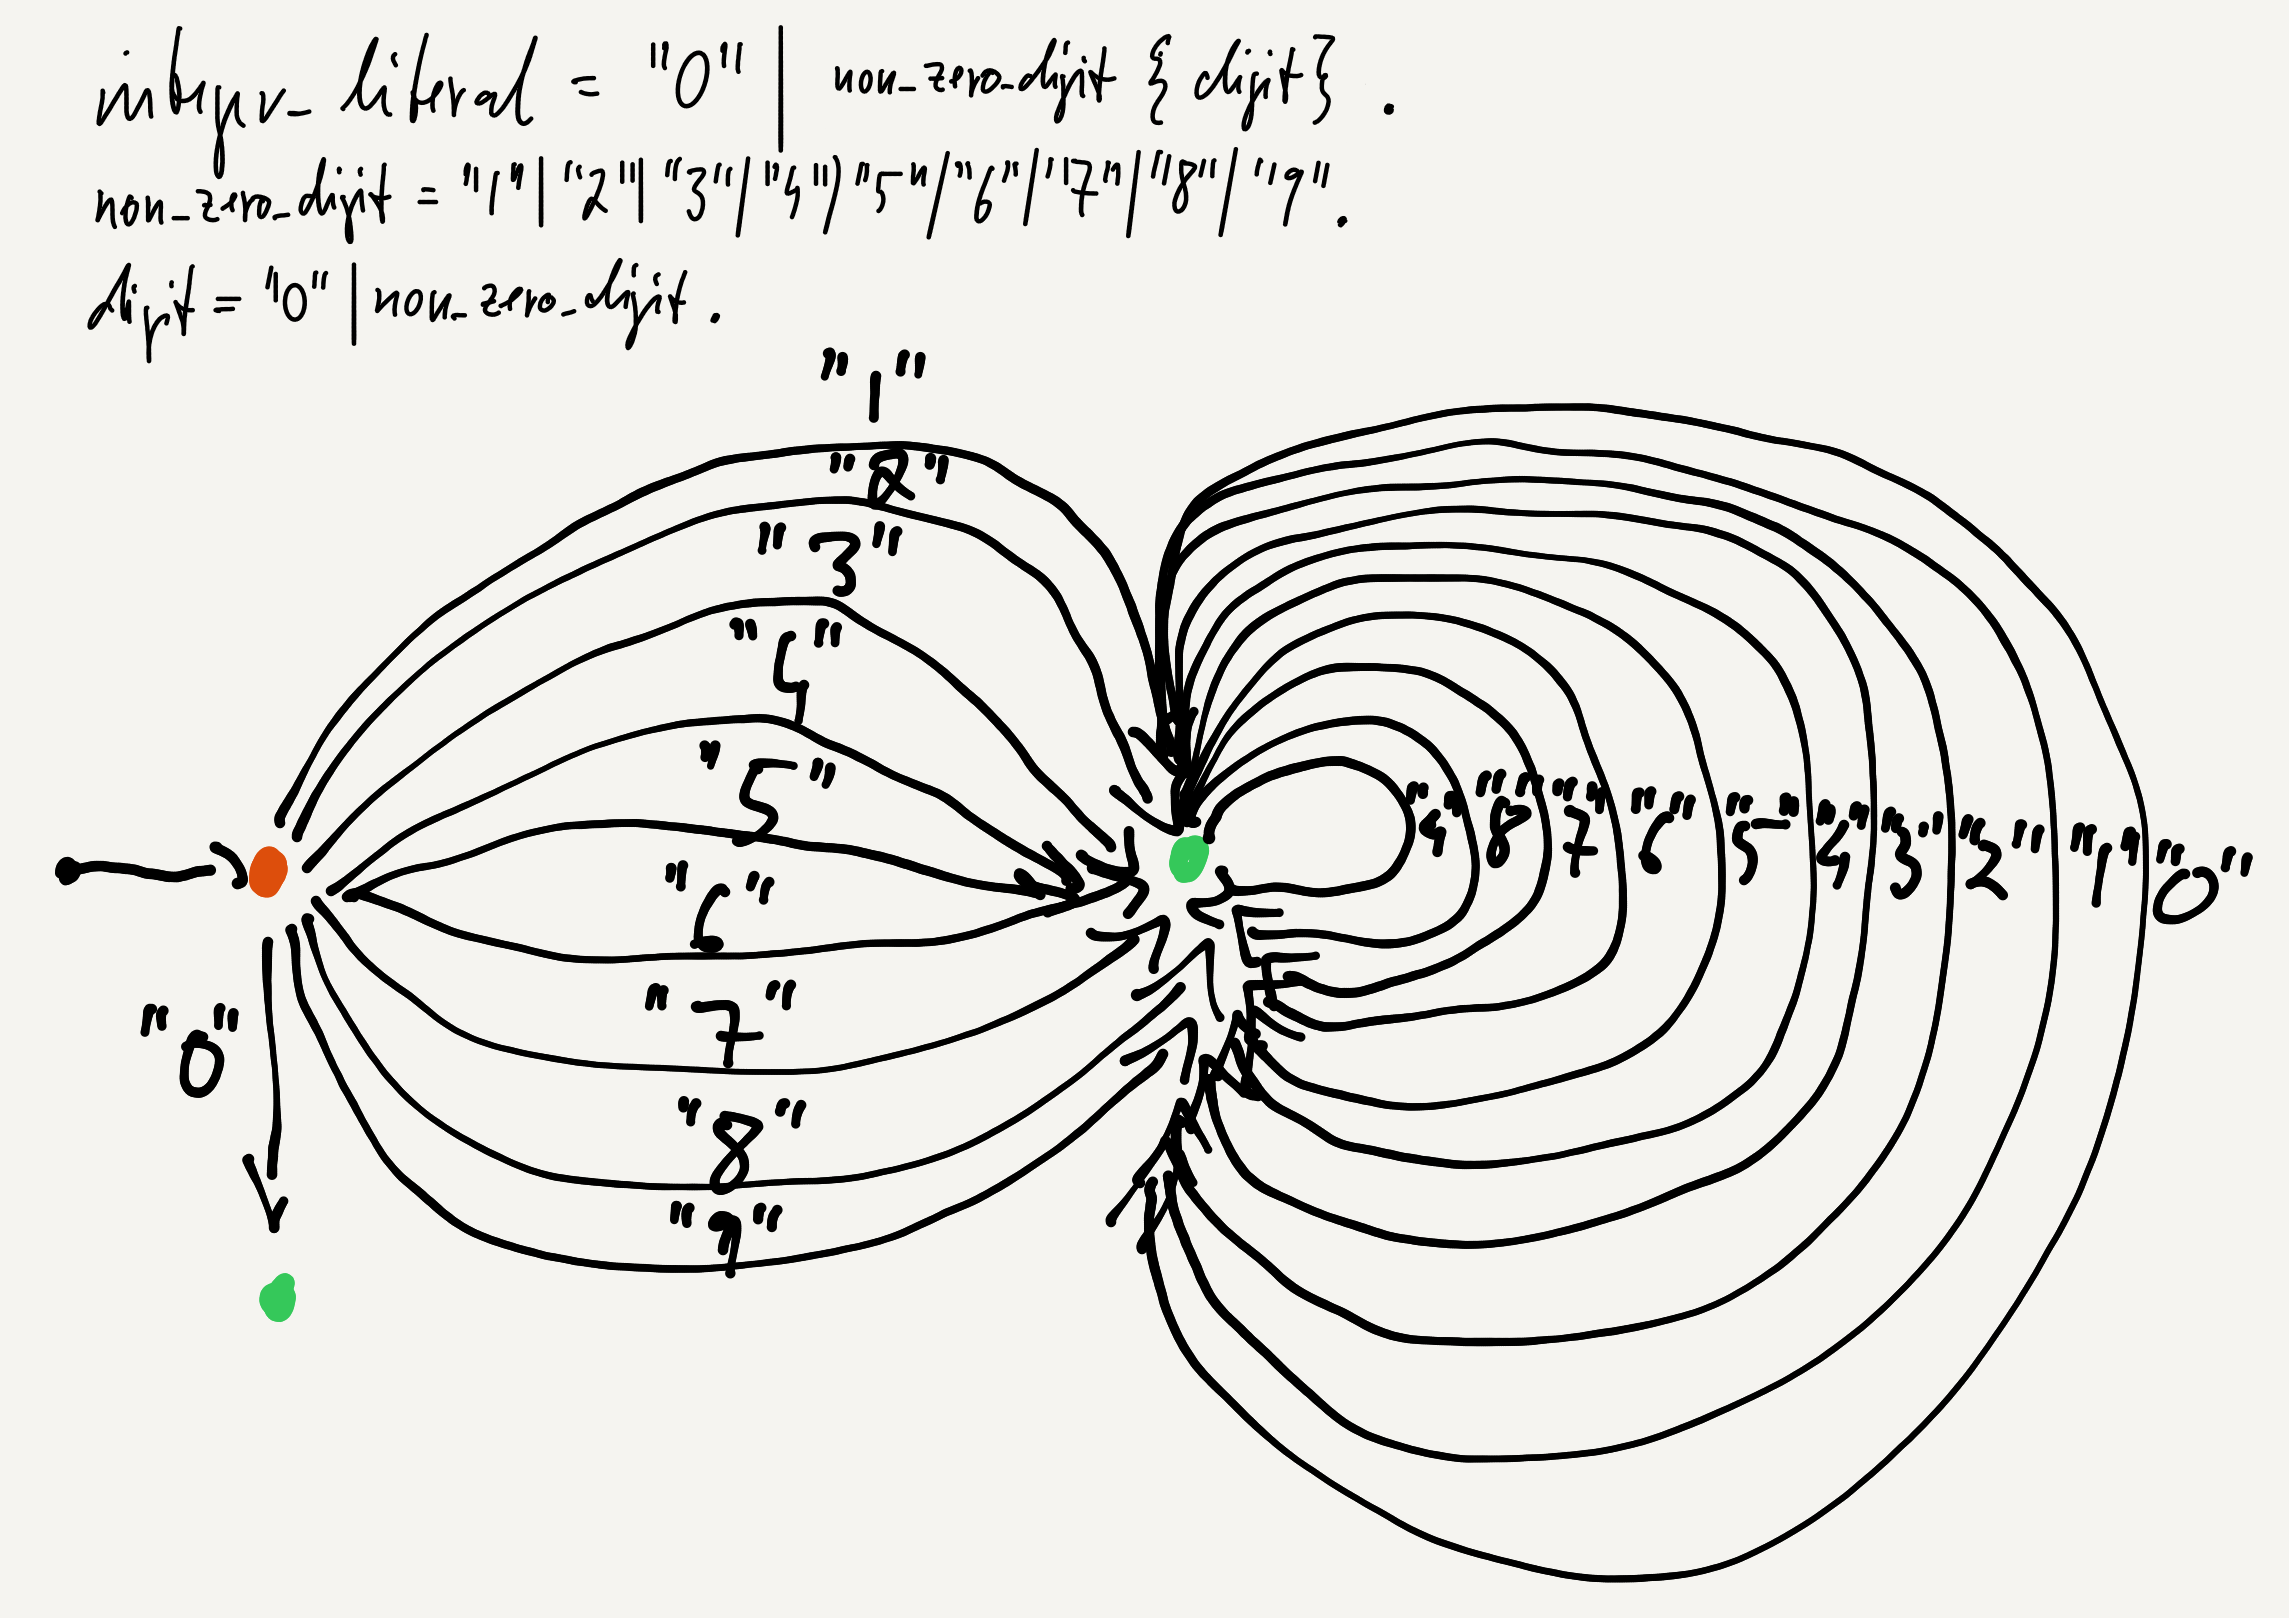 integer_literal = "0" | non_zero_digit { digit } .
non_zero_digit = "1" | "2" | "3" | "4" | "5" | "6" | "7" | "8" | "9" .
digit = "0" | non_zero_digit .
"1"
"2"
"3"
"4"
"5"
"6"
"7"
"8"
"9"
"0"
"9" "8" "7" "6" "5" "4" "3" "2" "1" "0"